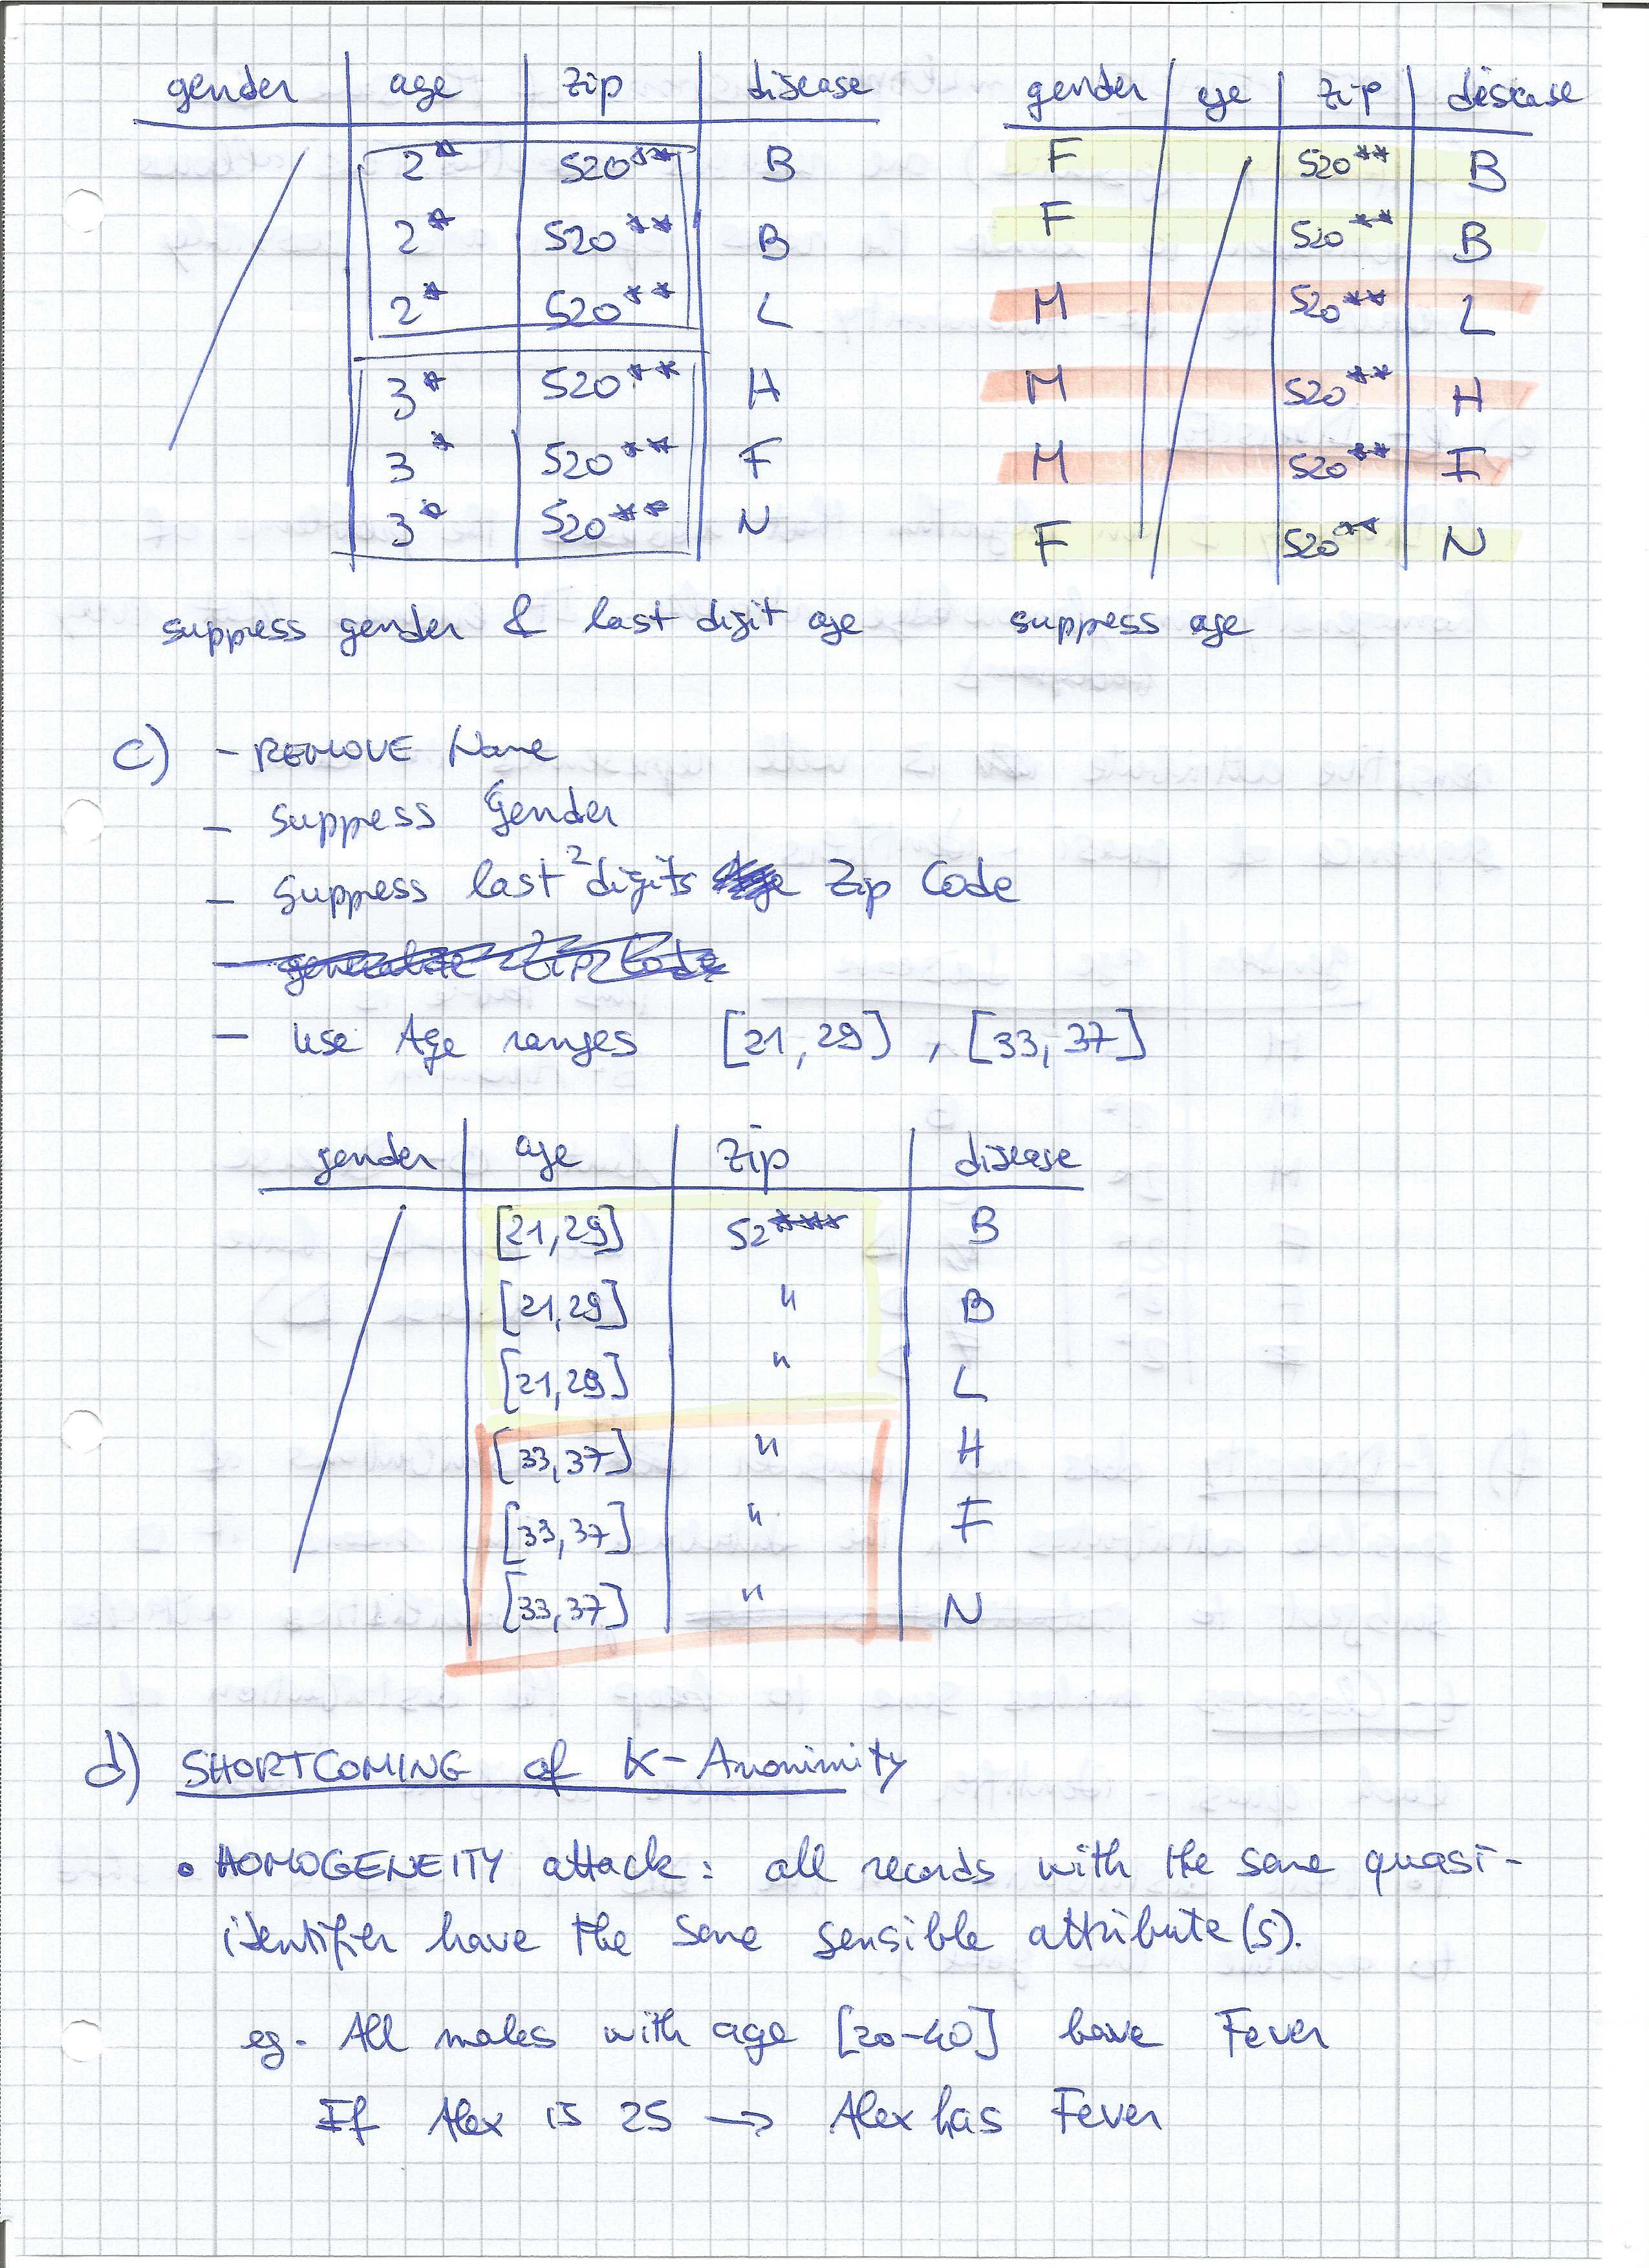 gender age zip disease
2* 520** B
2* 520** B
2* 520** L
3* 520** H
3* 520** F
3* 520** N
suppress gender & last digit age
gender age zip disease
F 520** B
F 520** B
M 520** L
M 520** H
M 520** F
F 520** N
suppress age
c) - REMOVE Name
- Suppress Gender
- Suppress last 2 digits Zip Code
- generalize Zip Code
- Use Age ranges [21,29], [33,37]
gender age zip disease
[21,29] 52**** B
[21,29] " B
[21,29] " L
[33,37] " H
[33,37] " F
[33,37] " N
d) SHORTCOMING of K-Anonimity
• HOMOGENEITY attack: all records with the same quasi-
identifier have the same sensible attribute(s).
eg. All males with age [20-40] have Fever
If Alex is 25 → Alex has Fever